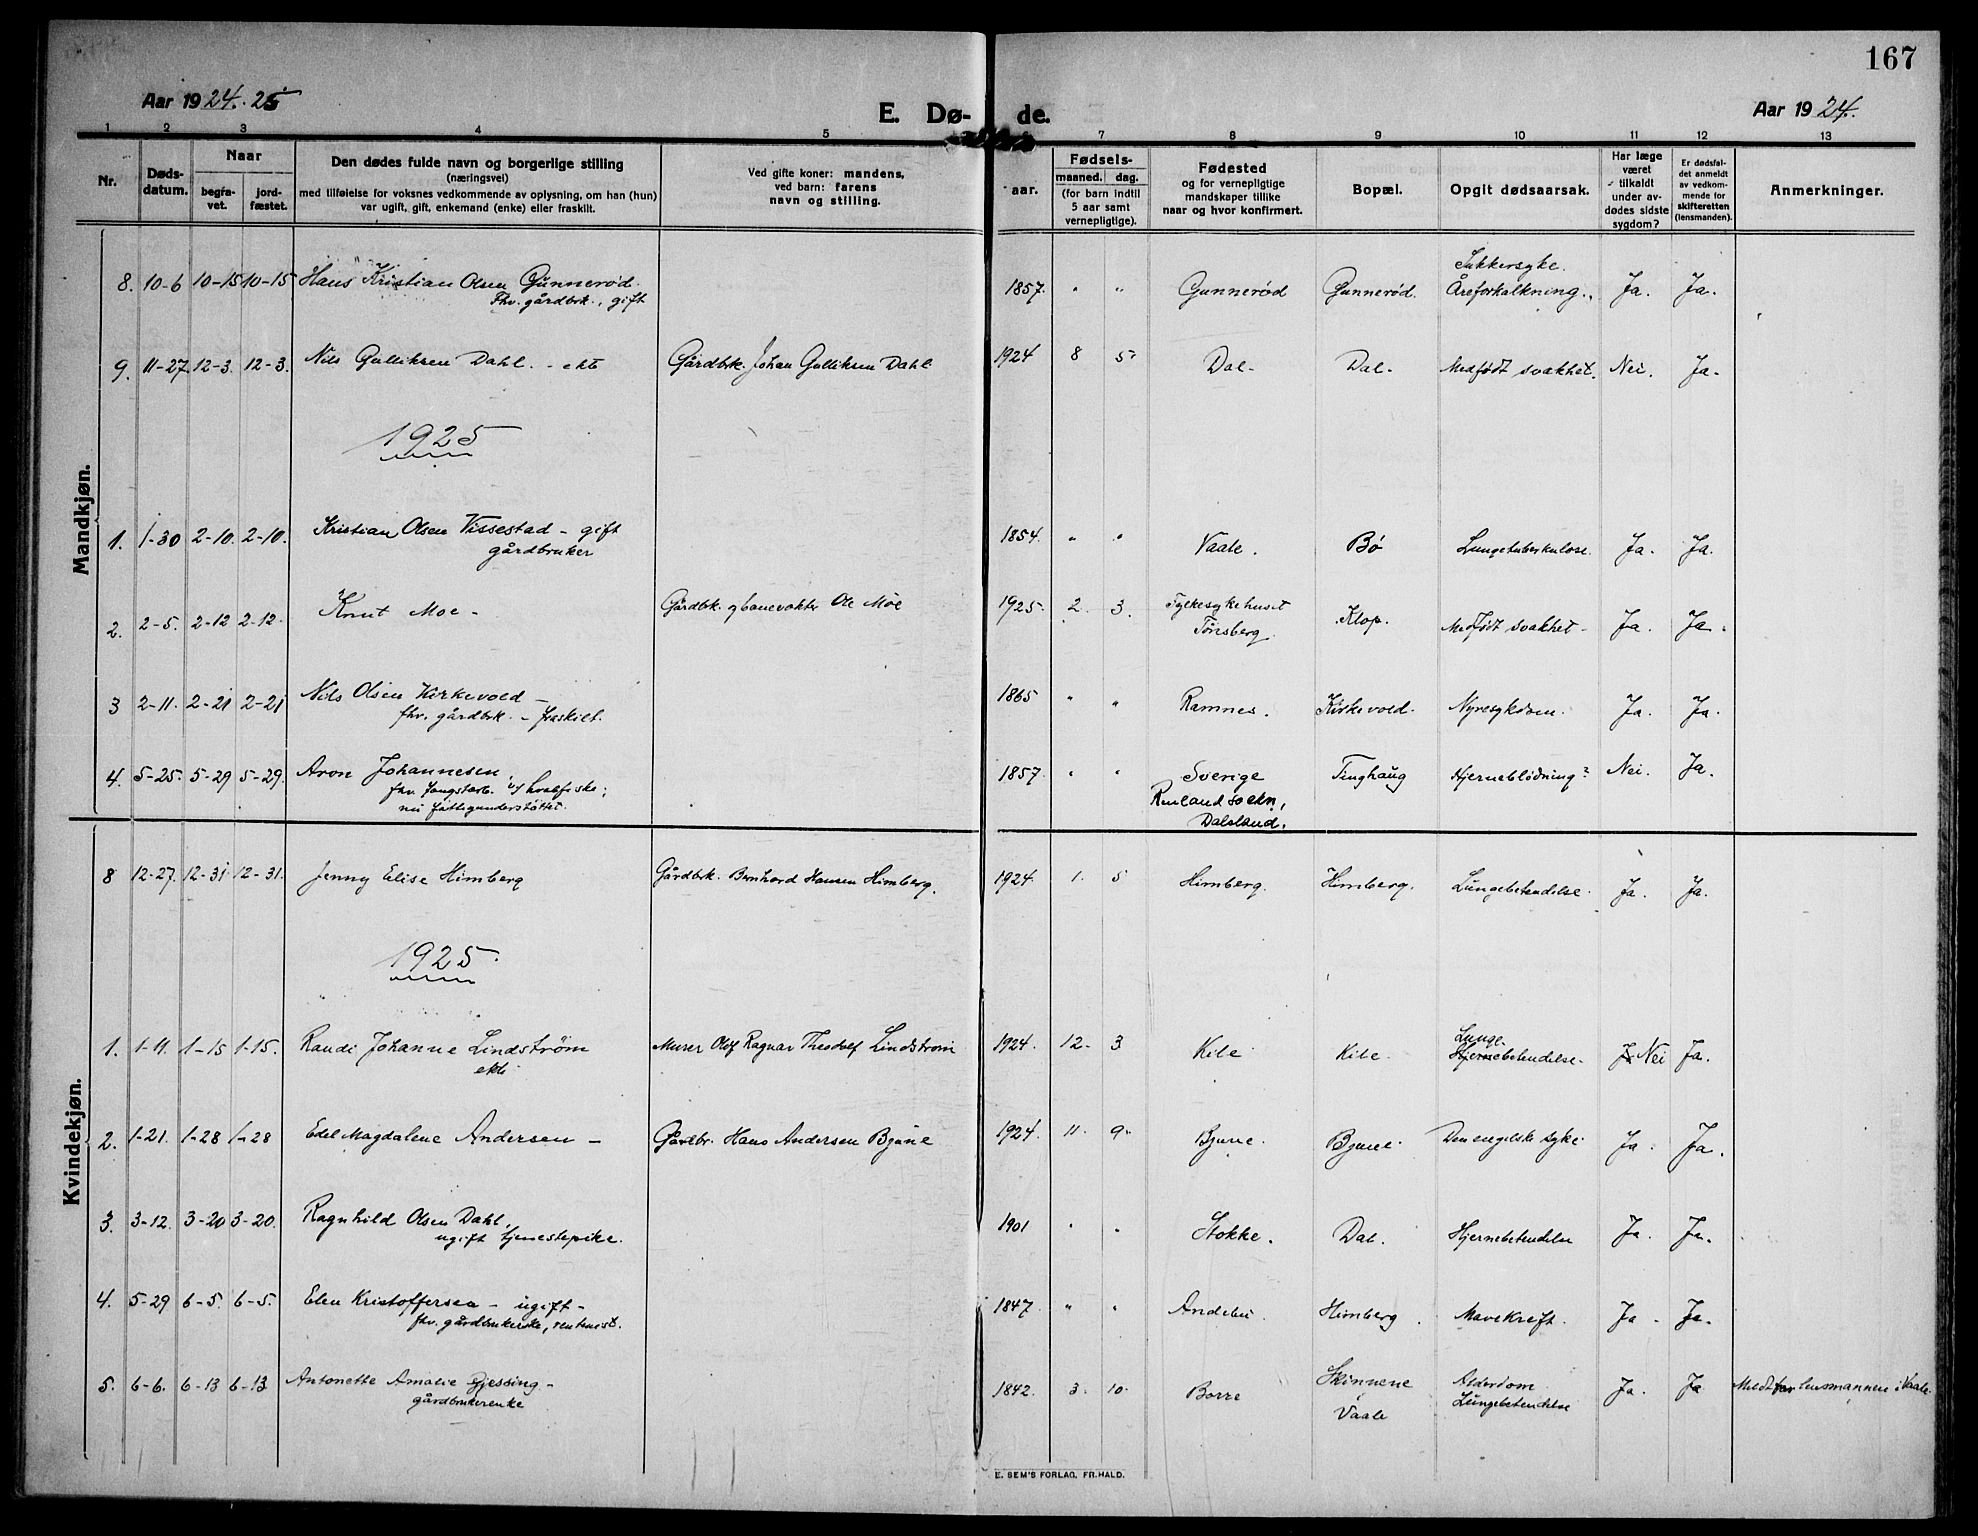 167
Aar 1924.25
E. Dø- de.
Aar 1924.
1 2 3 4 5 7 8 9 10 11 12 13
Nr.
Døds-
datum.
Naar
begra-
vet.
jord-
fæstet.
Den dødes fulde navn og borgerlige stilling
(næringsvei)
med tilføielse for voksnes vedkommende av oplysning, om han (hun)
var ugift, gift, enkemand (enke) eller fraskilt.
Ved gifte koner: mandens,
ved barn: farens
navn og stilling.
aar.
Fødsels-
maaned. dag.
(for barn indtil
5 aar samt
vernepligtige).
Fødested
og for vernepligtige
mandskaper tillike
naar og hvor konfirmert.
Bopæl.
Opgit dødsaarsak.
Har læge
været
tilkaldt
under av-
dødes sidste
sygdom?
Er dødsfal-
det anmeldt
av vedkom-
mende for
skifteretten
(lensmanden).
Anmerkninger.
Mandkjøn.
Sukkersyke.
8. 10-6 10-15 10-15 Hans Kristian Olsen Gunnerød. 1857. " " Gunnerød Gunnerød. Åreforkalkning. Ja. Ja.
Fhv. gårdbrk., gift
9. 11-27. 12-3. 12-3. Nils Gulliksen Dahl. - ekte Gårdbrk. Johan Gulliksen Dahl 1924 8 5 Dal- Dal- Medfødt svakhet. Nei. Ja.
1925
1. 1-30 2-10. 2-10. Kristian Olsen Vissestad - gift 1854. " " Vaale. Bø Lungetuberkulose. Ja. Ja.
gårdbruker
2. 2-5. 2-12 2-12. Knut Moe - Gårdbrk. og banevokter Ole Moe 1925. 2. 3. Fylkesykehuset Klop. Medfødt svakhet- Ja. Ja.
Tønsberg.
3 2-11. 2-21 2-21 Nils Olsen Kirkevold - 1865 " " Ramnes. Kirkevold. Nyresykdom. Ja. Ja.
fhv. gårdbrk. - fraskilt.
4. 5-25. 5-29 5-29. Aron Johannesen, 1857. " " Sverige Tinghaug Hjerneblødning? Nei. Ja.
fhv. fangstarb. v/ hvalfiske;
nu fattigunderstøttet.
socken,
Dalsland.
Kvindekjøn.
8 12-27. 12-31 12-31. Jenny Elise Himberg Gårdbrk. Bernhard Hansen Himberg. 1924. 1. 5 Himberg. Himberg. Lungebetendelse. Ja. Ja.
1925.
Lunge
1. 1-11. 1-15 1-15. Randi Johanne Lindstrøm Murer Olof Ragnar Theodolf Lindstrøm 1924. 12- 3 Kile Kile. Hjernebetendelse- Ja Nei Ja.
ekte
2. 1-21. 1-28 1-28 Edel Magdalene Andersen - Gårdbr. Hans Andersen Bjune 1924. 11. 9. Bjune. Bjune. Den engelske syke. Ja. Ja.
3. 3-12. 3-20 3-20. Ragnhild Olsen Dahl, 1901 " " Stokke. Dal. Hjernebetendelse Ja. Ja.
ugift tjenestepike.
4. 5-29 6-5. 6-5. Elen Kristoffersen - ugift - 1847. " " Andebu. Himberg. Mavekreft. Ja - Ja.
fhv. gårdbrukerske, rentenist.
5. 6-6. 6-13 6-13 Antonette Amalie Gjessing - 1842. 3. 10. Borre Skinnene Alderdom Ja. Ja Meldt for lensmannen i Vaale.
gårdbrukerenke Vaale Lungebetendelse
E. SEM'S FORLAG, FR.HALD.